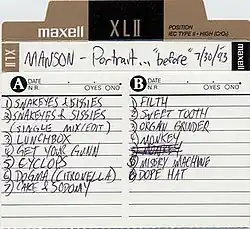 maxell XLII POSITION
IEC TYPE II • HIGH (CrO₂)
maxell
XLII
MANSON - Portrait... "before" 7/30/93
A DATE
N.R. YES NO
1) SNAKEYES & SISSIES
2) SNAKEYES & SISSIES
(SINGLE MIX/EDIT)
3) LUNCHBOX
4) GET YOUR GUNN
5) CYCLOPS
6) DOGMA (CITRONELLA)
7) CAKE & SODOMY
B DATE
N.R. YES NO
1) FILTH
2) SWEET TOOTH
3) ORGAN GRINDER
4) MONKEY
5) MISERY MACHINE
6) DOPE HAT